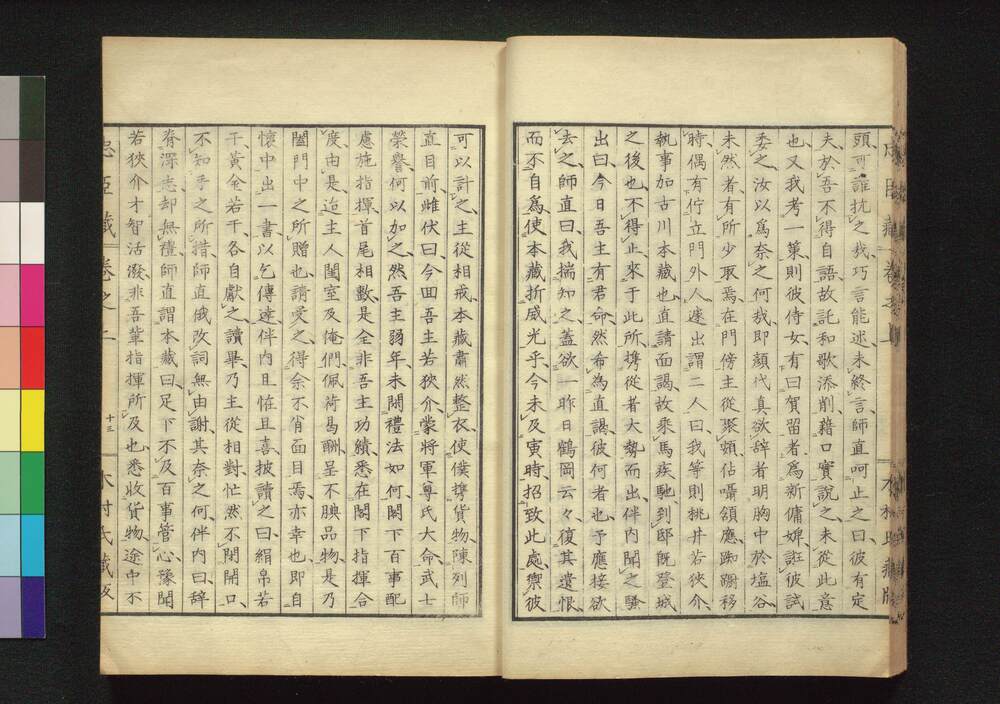 頭可誰抗之我巧言能述未終言師直呵止之曰彼有定
夫於吾不得自語故託和歌添削藉口實說之未從此意
也又我考一策則彼侍女有曰賀留者為新傭婢誑彼試
委之汝以為奈之何我即顏代真欲辞者明胸中於塩谷
未然者有所少取焉在門傍主從聚頰佔囁頷應踟蹰移
時偶有佇立門外人遽出謂二人曰我等則桃井若狹介
執事加古川本藏也直請面謁故乘馬疾馳到邸既登城
之後也不得止來于此所携從者大勢而出伴内聞之騷
出曰今日吾主有君命然希為直謁彼何者也予應接欲
去之師直曰我揣知之蓋欲一昨日鶴岡云々復其遺恨
而不自為使本藏折威光乎今未及寅時招致此處禦彼
可以計之主從相戒本藏肅然整衣使僕携貨物陳列師
直目前雌伏曰今回吾主若狹介蒙將軍尊氏大命武士
榮譽何以加之然吾主弱年未閑禮法如何閣下百事配
慮施指揮首尾相數是全非吾主功績悉在閣下指揮合
度由是迨主人閨室及俺們佩荷曷酬呈不腆品物是乃
闔門中之所贈也請受之得余不肖面目焉亦幸也即自
懷中出一書以乞傳達伴内且恠且喜披讀之曰絹帛若
干黄金若干各自獻之讀畢乃主從相對忙然不閉開口
不知手之所措師直俄改詞無由謝其奈之何伴内曰辞
脊深志却無禮師直謂本藏曰足下不及百事管心豫聞
若狹介才智活潑非吾輩指揮所及也悉收貨物途中不
忠臣藏 卷之上 十三 木村氏藏版